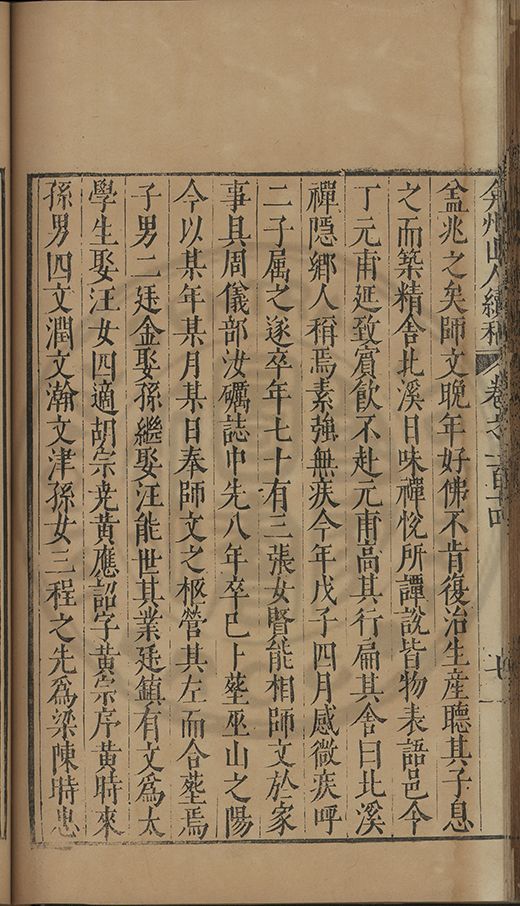 弇州山人續稿 卷之一百十四 七
盖兆之矣師文晚年好佛不肯復治生産聽其子息
之而築精舍北溪日味禪悅所譚說皆物表語邑令
丁元甫延致賓飲不赴元甫高其行扁其舍曰北溪
禪隱鄉人稱焉素強無疾今年戊子四月感微疾呼
二子属之遂卒年七十有三張女賢能相師文於家
事具周儀部汝礪誌中先八年卒已卜塟巫山之陽
今以某年某月某日奉師文之柩營其左而合塟焉
子男二廷金娶孫繼娶汪能世其業廷鎮有文爲太
學生娶汪女四適胡宗尭黃應詔字黃宗序黃時來
孫男四文潤文瀚文津孫女三程之先爲梁陳時忠